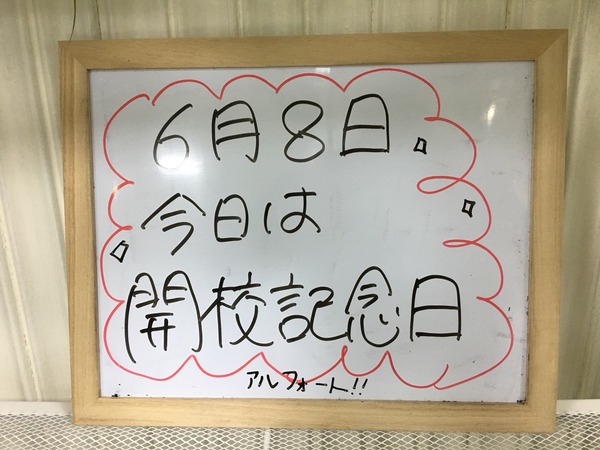 6月8日
今日は
開校記念日
アルフォート!!